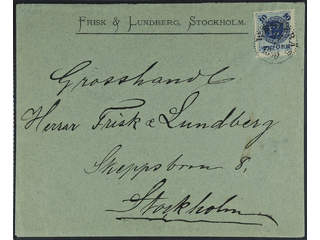 FRISK & LUNDBERG, STOCKHOLM.
10 10
Grosshandl
Herrar Frisk & Lundberg
Skeppsbron 8,
Stockholm